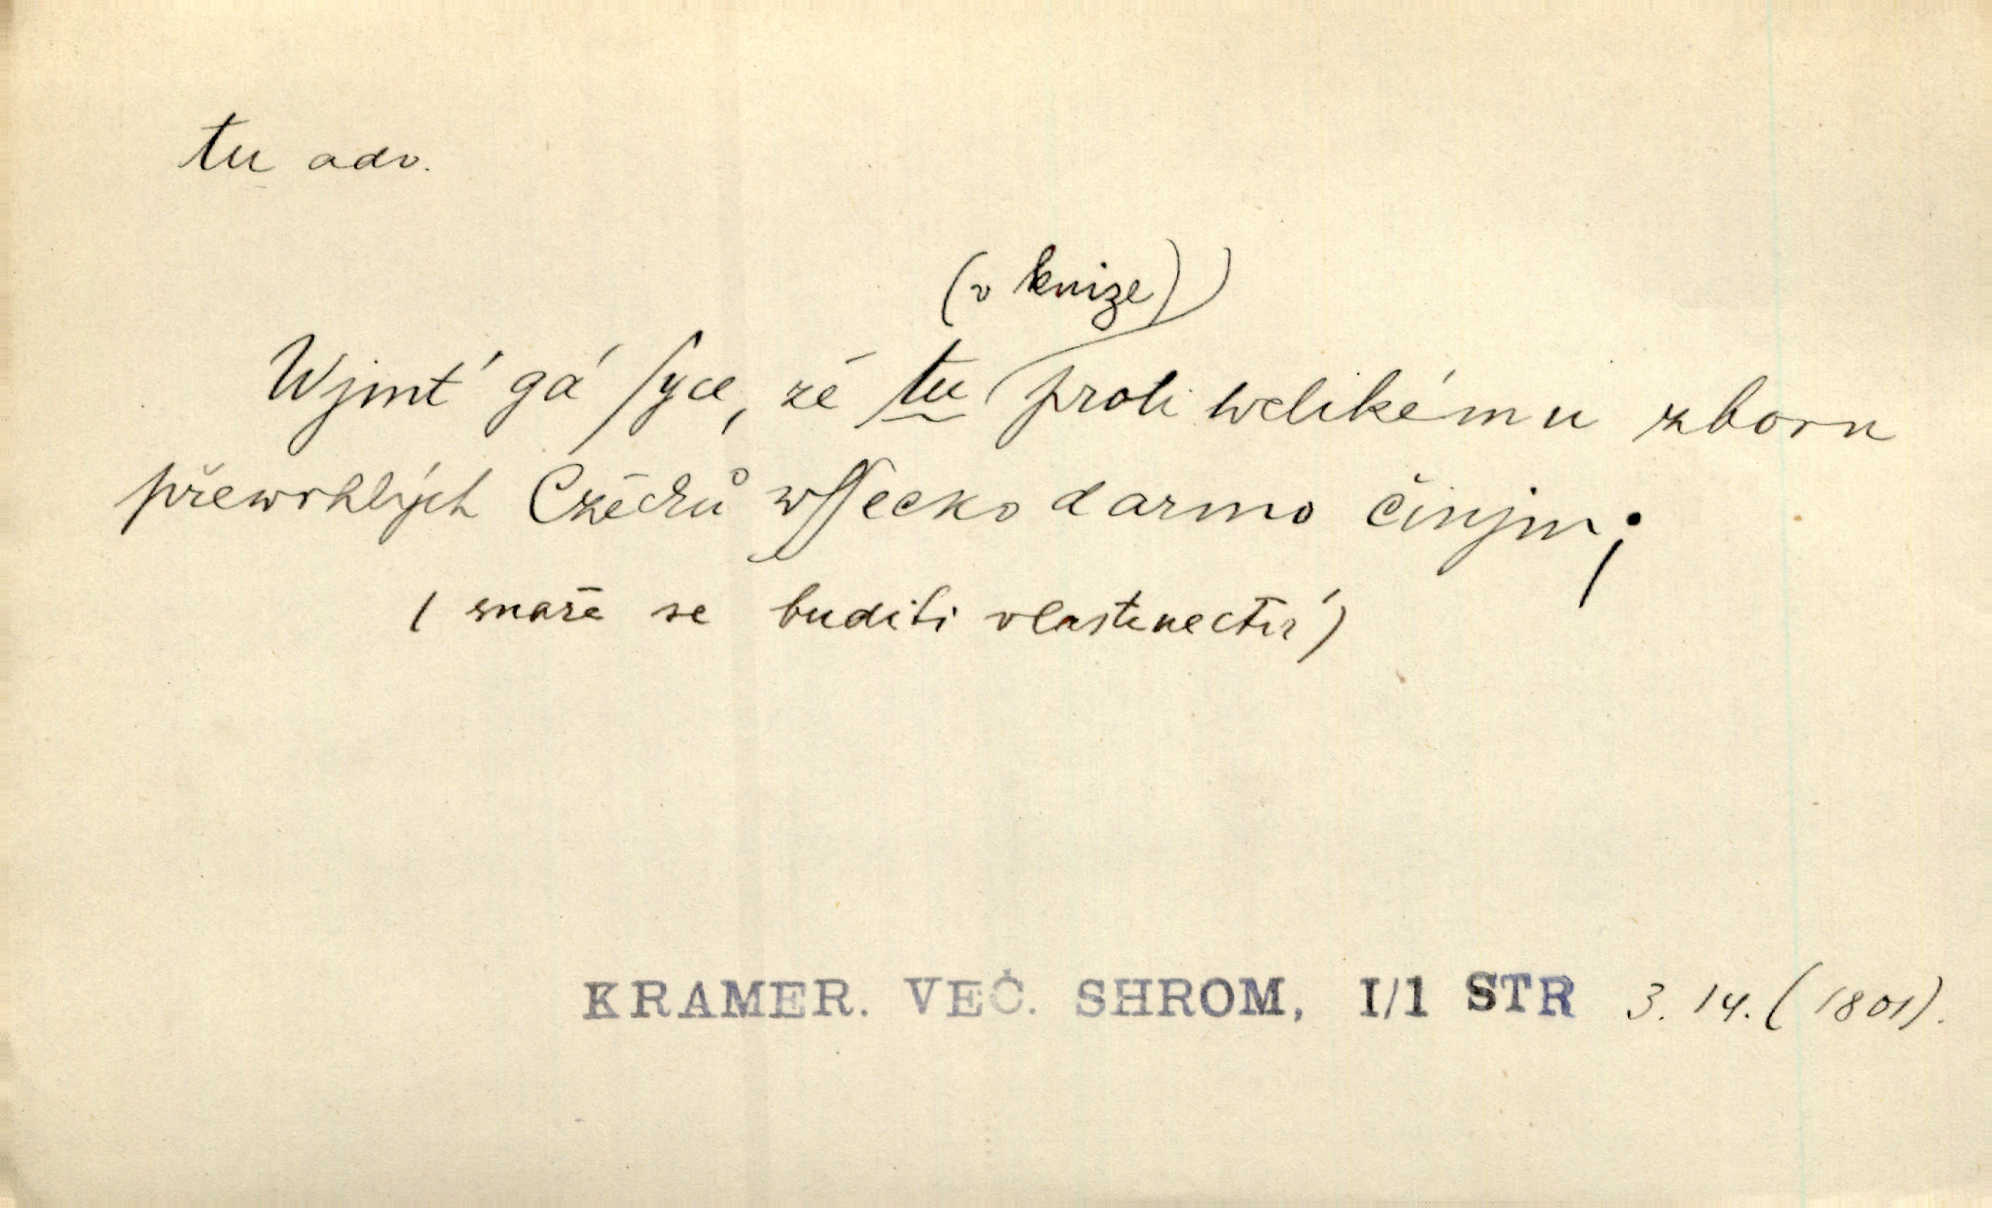 tu adv.
(v knize)
Wjmť gá ſyce, že tu proti welikému zboru
přewrhlých Czechů wſſecko darmo činjm;
(snaže se buditi vlastenectví)
KRAMER. VEČ. SHROM, I/1 STR 3. 14. (1801).